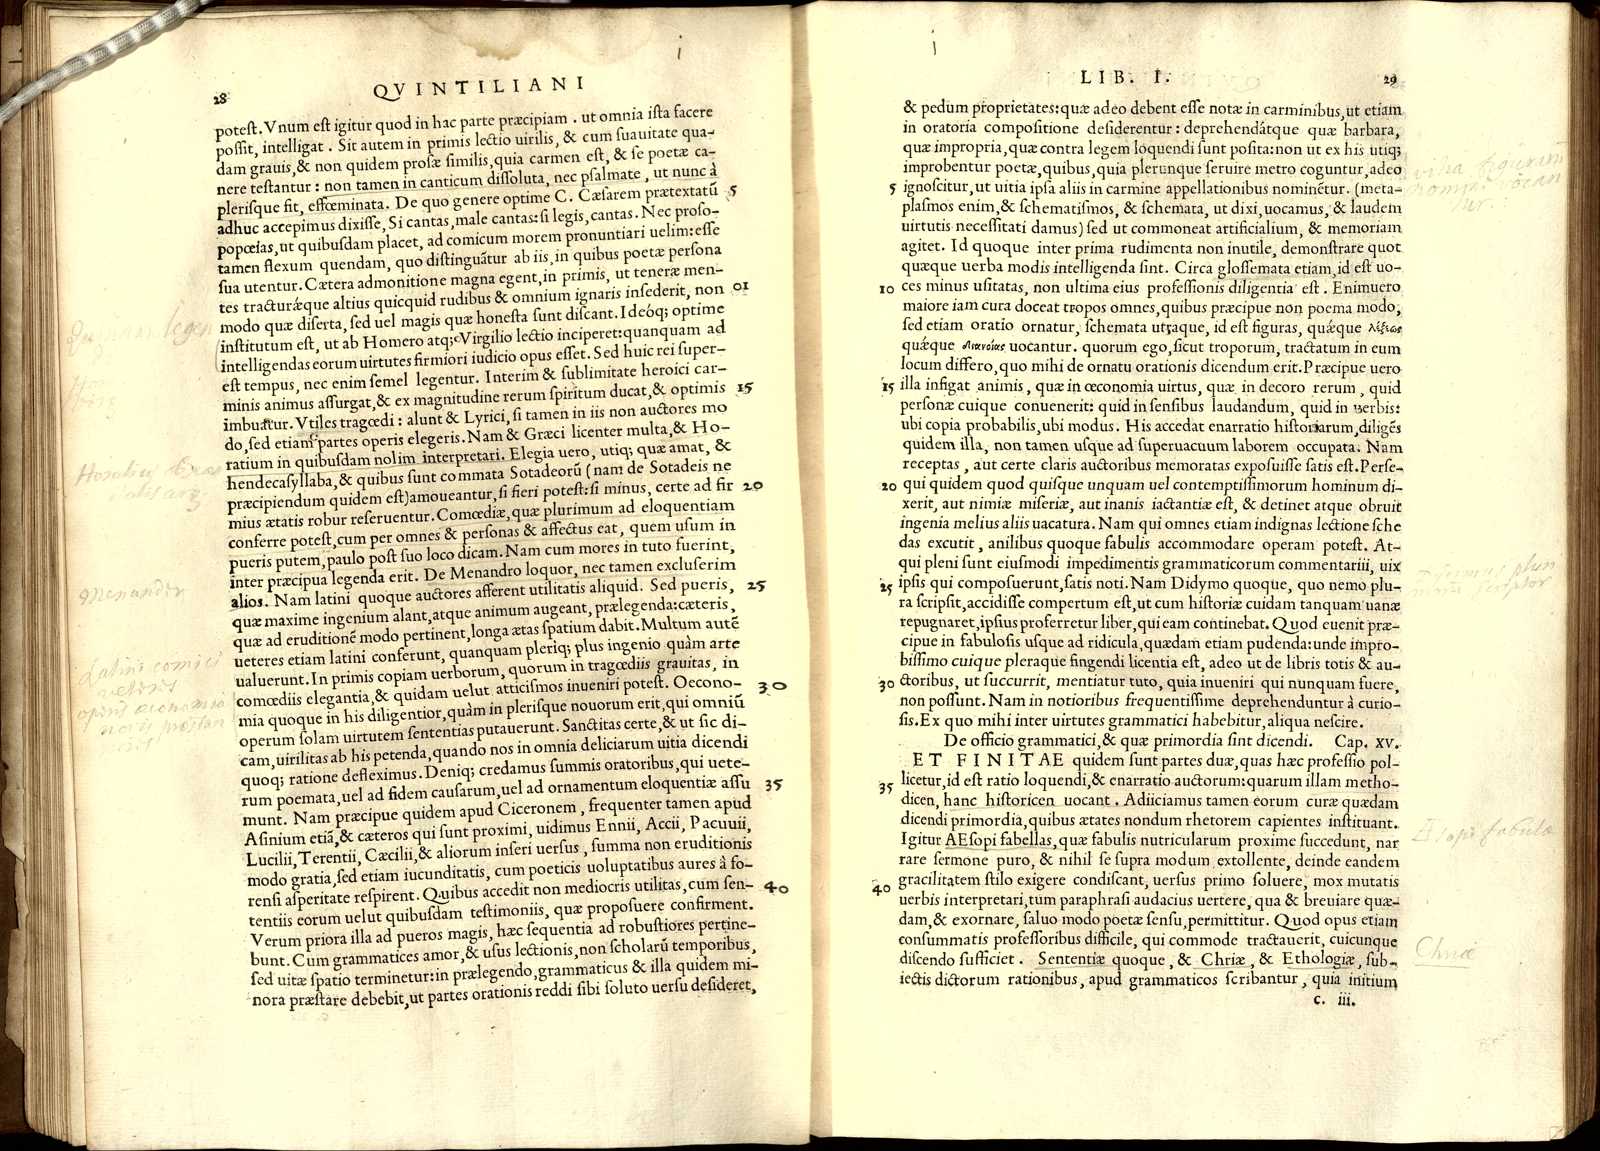 28 QVINTILIANI
potest. Vnum est igitur quod in hac parte præcipiam. ut omnia ista facere
possit, intelligat. Sit autem in primis lectio uirilis, & cum suauitate qua-
dam grauis, & non quidem prosæ similis, quia carmen est, & se poetæ ca-
nere testantur: non tamen in canticum dissoluta, nec psalmate, ut nunc à
plerisque fit, effœminata. De quo genere optime C. Cæsarem prætextatū 5
adhuc accepimus dixisse, Si cantas, male cantas: si legis, cantas. Nec proso-
popœias, ut quibusdam placet, ad comicum morem pronuntiari uelim: esse
tamen flexum quendam, quo distinguātur ab iis, in quibus poetæ persona
sua utentur. Cætera admonitione magna egent, in primis, ut teneræ men-
tes tracturǽque altius quicquid rudibus & omnium ignaris insederit, non 01
modo quæ diserta, sed uel magis quæ honesta sunt discant. Ideóq; optime
institutum est, ut ab Homero atq; Virgilio lectio inciperet: quanquam ad
intelligendas eorum uirtutes firmiori iudicio opus esset. Sed huic rei super-
est tempus, nec enim semel legentur. Interim & sublimitate heroici car-
minis animus assurgat, & ex magnitudine rerum spiritum ducat, & optimis 15
imbuatur. Vtiles tragœdi: alunt & Lyrici, si tamen in iis non auctores mo
do, sed etiam partes operis elegeris. Nam & Græci licenter multa, & Ho-
ratium in quibusdam nolim interpretari. Elegia uero, utiq; quæ amat, &
hendecasyllaba, & quibus sunt commata Sotadeorū (nam de Sotadeis ne
præcipiendum quidem est) amoueantur, si fieri potest: si minus, certe ad fir 20
mius ætatis robur reseruentur. Comœdiæ, quæ plurimum ad eloquentiam
conferre potest, cum per omnes & personas & affectus eat, quem usum in
pueris putem, paulo post suo loco dicam. Nam cum mores in tuto fuerint,
inter præcipua legenda erit. De Menandro loquor, nec tamen excluserim
alios. Nam latini quoque auctores afferent utilitatis aliquid. Sed pueris, 25
quæ maxime ingenium alant, atque animum augeant, prælegenda: cæteris,
quæ ad eruditionē modo pertinent, longa ætas spatium dabit. Multum autē
ueteres etiam latini conferunt, quanquam pleriq; plus ingenio quàm arte
ualuerunt. In primis copiam uerborum, quorum in tragœdiis grauitas, in
comœdiis elegantia, & quidam uelut atticismos inueniri potest. Oecono- 30
mia quoque in his diligentior, quàm in plerisque nouorum erit, qui omniū
operum solam uirtutem sententias putauerunt. Sanctitas certe, & ut sic di-
cam, uirilitas ab his petenda, quando nos in omnia deliciarum uitia dicendi
quoq; ratione defleximus. Deniq; credamus summis oratoribus, qui uete-
rum poemata, uel ad fidem causarum, uel ad ornamentum eloquentiæ assu 35
munt. Nam præcipue quidem apud Ciceronem, frequenter tamen apud
Asinium etiā, & cæteros qui sunt proximi, uidimus Ennii, Accii, Pacuuii,
Lucilii, Terentii, Cæcilii, & aliorum inseri uersus, summa non eruditionis
modo gratia, sed etiam iucunditatis, cum poeticis uoluptatibus aures à fo-
rensi asperitate respirent. Quibus accedit non mediocris utilitas, cum sen- 40
tentiis eorum uelut quibusdam testimoniis, quæ proposuere confirment.
Verum priora illa ad pueros magis, hæc sequentia ad robustiores pertine-
bunt. Cum grammatices amor, & usus lectionis, non scholarū temporibus,
sed uitæ spatio terminetur: in prælegendo, grammaticus & illa quidem mi-
nora præstare debebit, ut partes orationis reddi sibi soluto uersu desideret,
Menander
Latini comici
LIB. I. 29
& pedum proprietates: quæ adeo debent esse notæ in carminibus, ut etiam
in oratoria compositione desiderentur: deprehendátque quæ barbara,
quæ impropria, quæ contra legem loquendi sunt posita: non ut ex his utiq;
improbentur poetæ, quibus, quia plerunque seruire metro coguntur, adeo
5 ignoscitur, ut uitia ipsa aliis in carmine appellationibus nominētur. (meta-
plasmos enim, & schematismos, & schemata, ut dixi, uocamus, & laudem
uirtutis necessitati damus) sed ut commoneat artificialium, & memoriam
agitet. Id quoque inter prima rudimenta non inutile, demonstrare quot
quæque uerba modis intelligenda sint. Circa glossemata etiam, id est uo-
10 ces minus usitatas, non ultima eius professionis diligentia est. Enimuero
maiore iam cura doceat tropos omnes, quibus præcipue non poema modo,
sed etiam oratio ornatur, schemata utraque, id est figuras, quǽque λέξεως
quǽque διανοίας uocantur. quorum ego, sicut troporum, tractatum in eum
locum differo, quo mihi de ornatu orationis dicendum erit. Præcipue uero
15 illa infigat animis, quæ in œconomia uirtus, quæ in decoro rerum, quid
personæ cuique conuenerit: quid in sensibus laudandum, quid in uerbis:
ubi copia probabilis, ubi modus. His accedat enarratio historiarum, diligēs
quidem illa, non tamen usque ad superuacuum laborem occupata. Nam
receptas, aut certe claris auctoribus memoratas exposuisse satis est. Perse-
20 qui quidem quod quisque unquam uel contemptissimorum hominum di-
xerit, aut nimiæ miseriæ, aut inanis iactantiæ est, & detinet atque obruit
ingenia melius aliis uacatura. Nam qui omnes etiam indignas lectione sche
das excutit, anilibus quoque fabulis accommodare operam potest. At-
qui pleni sunt eiusmodi impedimentis grammaticorum commentarii, uix
25 ipsis qui composuerunt, satis noti. Nam Didymo quoque, quo nemo plu-
ra scripsit, accidisse compertum est, ut cum historiæ cuidam tanquam uanæ
repugnaret, ipsius proferretur liber, qui eam continebat. Quod euenit præ-
cipue in fabulosis usque ad ridicula, quædam etiam pudenda: unde impro-
bissimo cuique pleraque fingendi licentia est, adeo ut de libris totis & au-
30 ctoribus, ut succurrit, mentiatur tuto, quia inueniri qui nunquam fuere,
non possunt. Nam in notioribus frequentissime deprehenduntur à curio-
sis. Ex quo mihi inter uirtutes grammatici habebitur, aliqua nescire.
De officio grammatici, & quæ primordia sint dicendi. Cap. XV.
ET FINITAE quidem sunt partes duæ, quas hæc professio pol-
35 licetur, id est ratio loquendi, & enarratio auctorum: quarum illam metho-
dicen, hanc historicen uocant. Adiiciamus tamen eorum curæ quædam
dicendi primordia, quibus ætates nondum rhetorem capientes instituant.
Igitur AEsopi fabellas, quæ fabulis nutricularum proxime succedunt, nar
rare sermone puro, & nihil se supra modum extollente, deinde eandem
40 gracilitatem stilo exigere condiscant, uersus primo soluere, mox mutatis
uerbis interpretari, tum paraphrasi audacius uertere, qua & breuiare quæ-
dam, & exornare, saluo modo poetæ sensu, permittitur. Quod opus etiam
consummatis professoribus difficile, qui commode tractauerit, cuicunque
discendo sufficiet. Sententiæ quoque, & Chriæ, & Ethologiæ, sub-
iectis dictorum rationibus, apud grammaticos scribantur, quia initium
c. iii.
Æsopi fabulæ
Chriæ